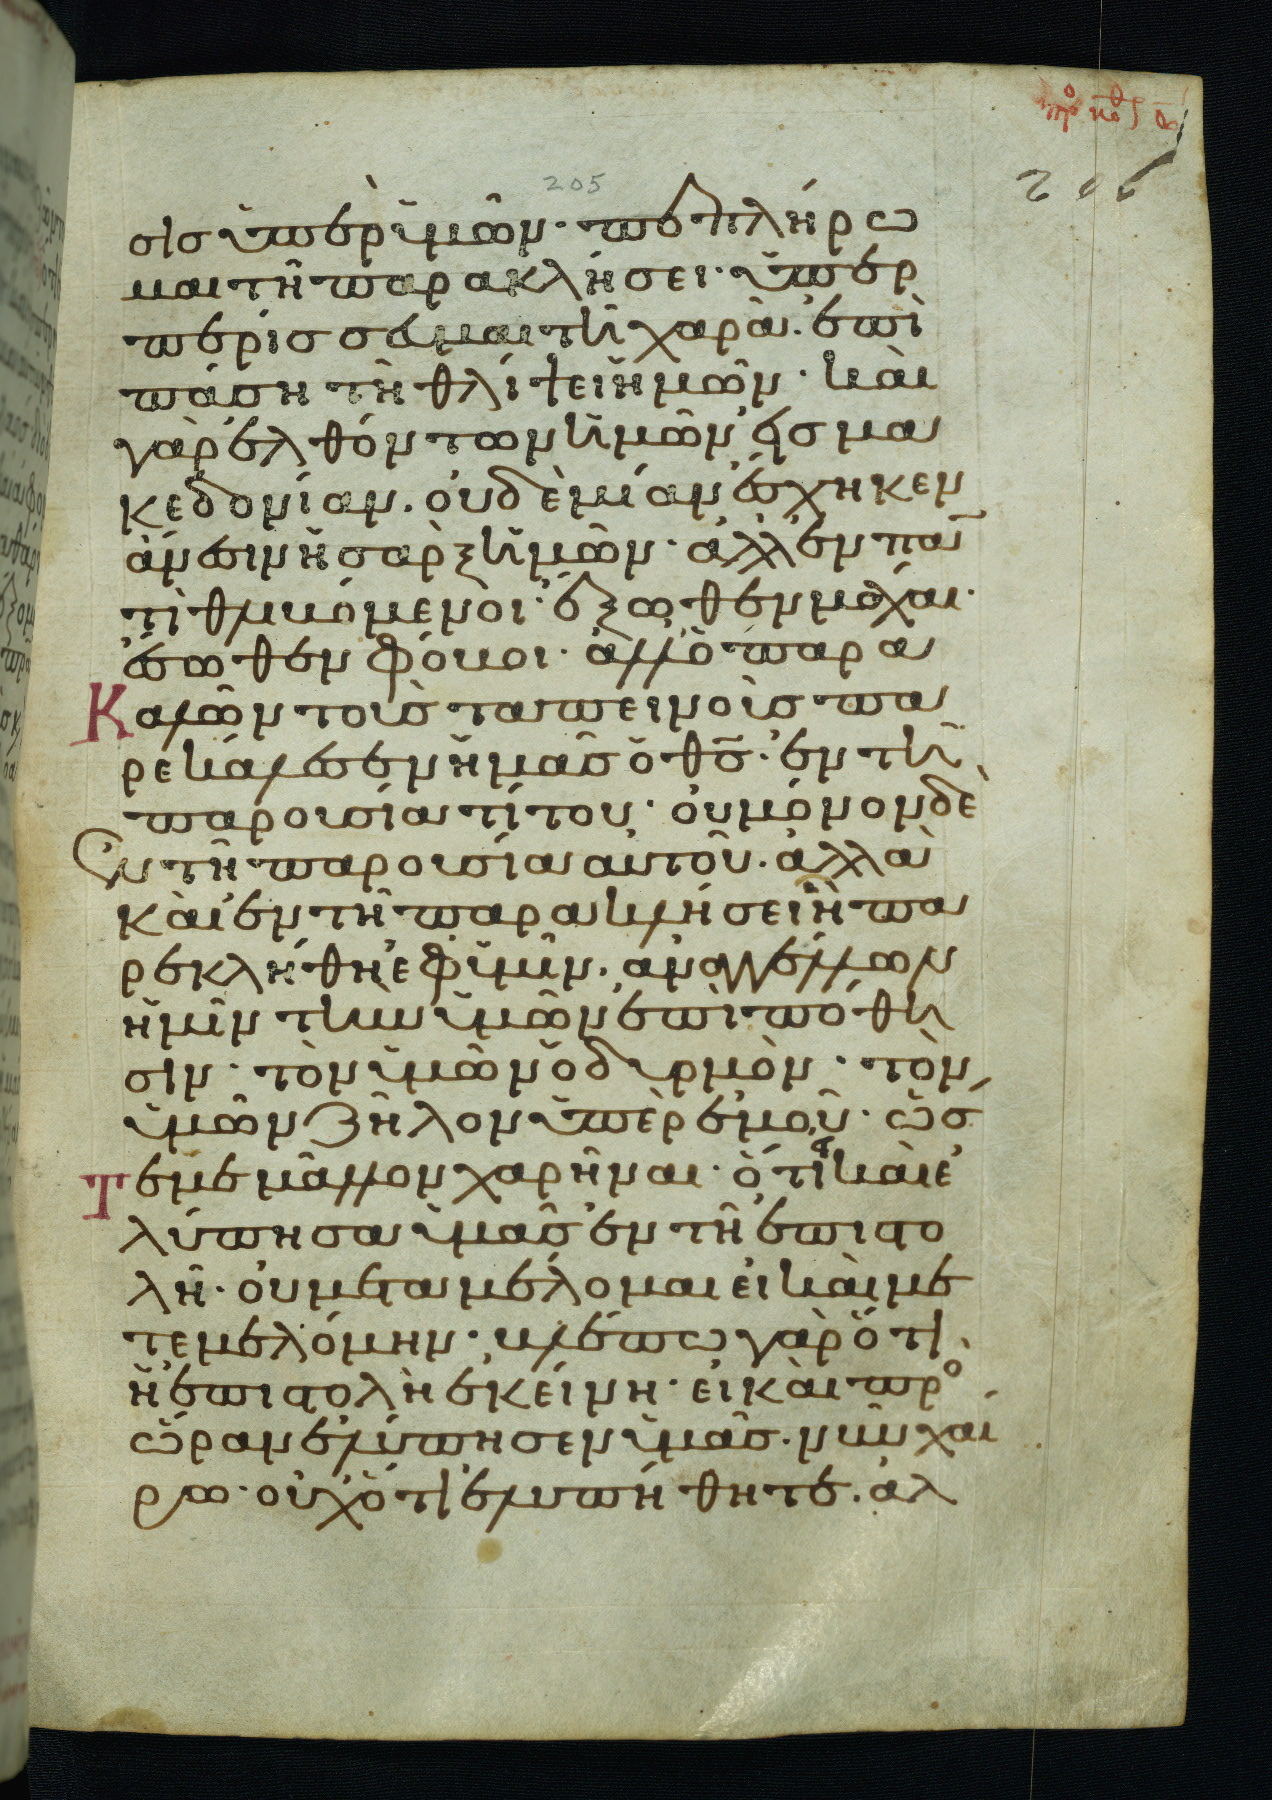 205
206
σισ ὑπὲρ ὑμῶν· πεπλήρω
μαι τῆ παρακλήσει· ὑπερ
περίσσεύμαι τῆ χαρᾶ· ἐπὶ
πάση τῆ θλίψει ἡμῶν· καὶ
γὰρ ἐλθόντων ἡμῶν εἰσ μα
κεδονίαν. οὐδεμίαν ἔσχηκεν
ἄνεσιν ἡ σὰρξ ἡμῶν· ἀλλ' ἐν παν
τὶ θλιβόμενοι· ἔξωθεν μάχαι·
ἔσωθεν φόβοι· ἀλλ' ὁ παρα
Καλῶν τοὺσ ταπεινοὺσ πα
ρεκάλεσεν ἡμᾶσ ὁ θ̅σ̅· ἐν τῆ
παρουσία τίτου· οὐ μόνον δὲ
Ἐν τῆ παρουσία αὐτοῦ· ἀλλὰ
καὶ ἐν τῆ παρακλήσει ἧ πα
ρεκλήθη ἐφ' ὑμῖν· ἀναγγέλλων
ἡμῖν τὴν ὑμῶν ἐπιπόθη
σιν· τὸν ὑμῶν ὀδυρμὸν· τὸν
ὑμῶν ζῆλον ὑπὲρ ἐμοῦ· ὥσ
Τε με μᾶλλον χαρῆναι· ὅτι εἰ καὶ ἐ
λύπησα ὑμᾶσ ἐν τῆ ἐπιστο
λῆ· οὐ μεταμέλομαι εἰ καὶ με
τεμελόμην· βλέπω γὰρ ὅτι
ἡ ἐπιστολὴ ἐκείνη· εἰ καὶ πρὸ
ὥραν ἐλύπησεν ὑμᾶσ· νῦν χαί
ρω· οὐχ ὅτι ἐλυπήθητε· ἀλ